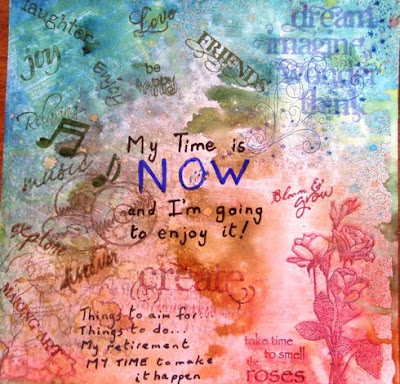 laughter
Love
dream
imagine
wonder
think
joy
enjoy
be
happy
FRIENDS
Relaxing
music
My Time is
NOW
and I'm going
to enjoy it!
Bloom &
Grow
explore
discover
create
MAKING ART
Things to aim for...
Things to do...
My retirement
MY TIME to make
it happen
take time
to smell
the
roses